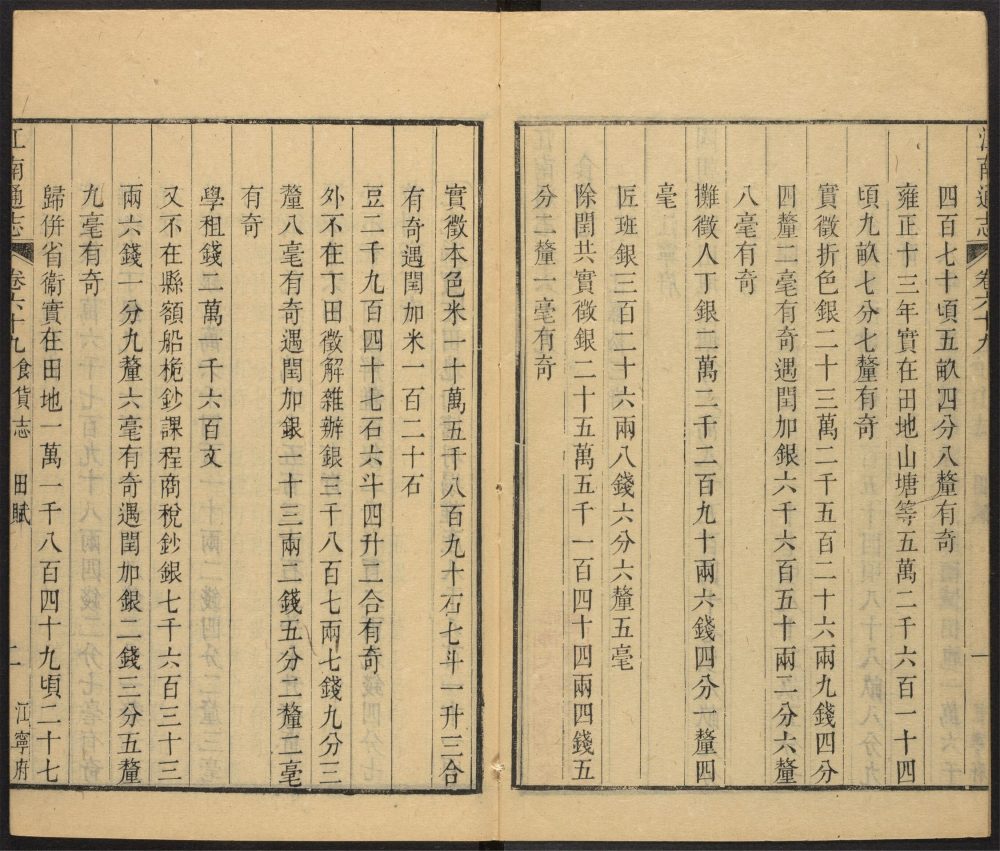 江南通志 卷六十九 一
四百七十頃五畝四分八釐有奇
雍正十三年實在田地山塘等五萬二千六百一十四
頃九畝七分七釐有奇
實徵折色銀二十三萬二千五百二十六兩九錢四分
四釐二毫有奇遇閏加銀六千六百五十兩二分六釐
八毫有奇
攤徵人丁銀二萬二千二百九十兩六錢四分一釐四
毫
匠班銀三百二十六兩八錢六分六釐五毫
除閏共實徵銀二十五萬五千一百四十四兩四錢五
分二釐一毫有奇
實徵本色米一十萬五千八百九十石七斗一升三合
有奇遇閏加米一百二十石
豆二千九百四十七石六斗四升二合有奇
外不在丁田徵解雜辦銀三千八百七兩七錢九分三
釐八毫有奇遇閏加銀一十三兩二錢五分二釐二毫
有奇
學租錢二萬一千六百文
又不在縣額船桅鈔課程商稅鈔銀七千六百三十三
兩六錢二分九釐六毫有奇遇閏加銀二錢三分五釐
九毫有奇
歸併省衛實在田地一萬一千八百四十九頃二十七
江南通志 卷六十九 食貨志 田賦 二 江寧府